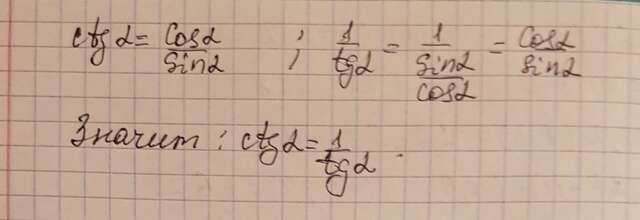 ctg α = cos α / sin α ; 1 / tg α = 1 / (sin α / cos α) = cos α / sin α
Значит : ctg α = 1 / tg α .